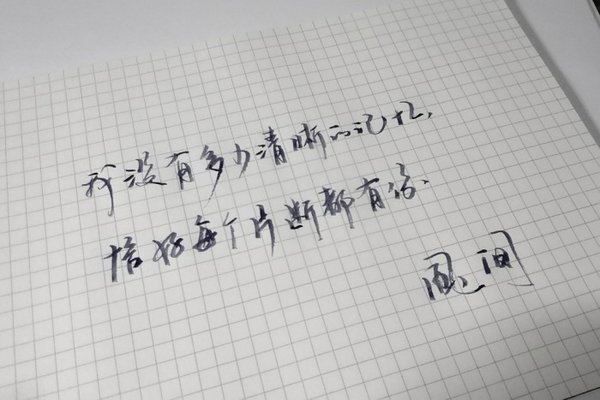 我没有多少清晰的记忆,
恰好每个片断都有你.